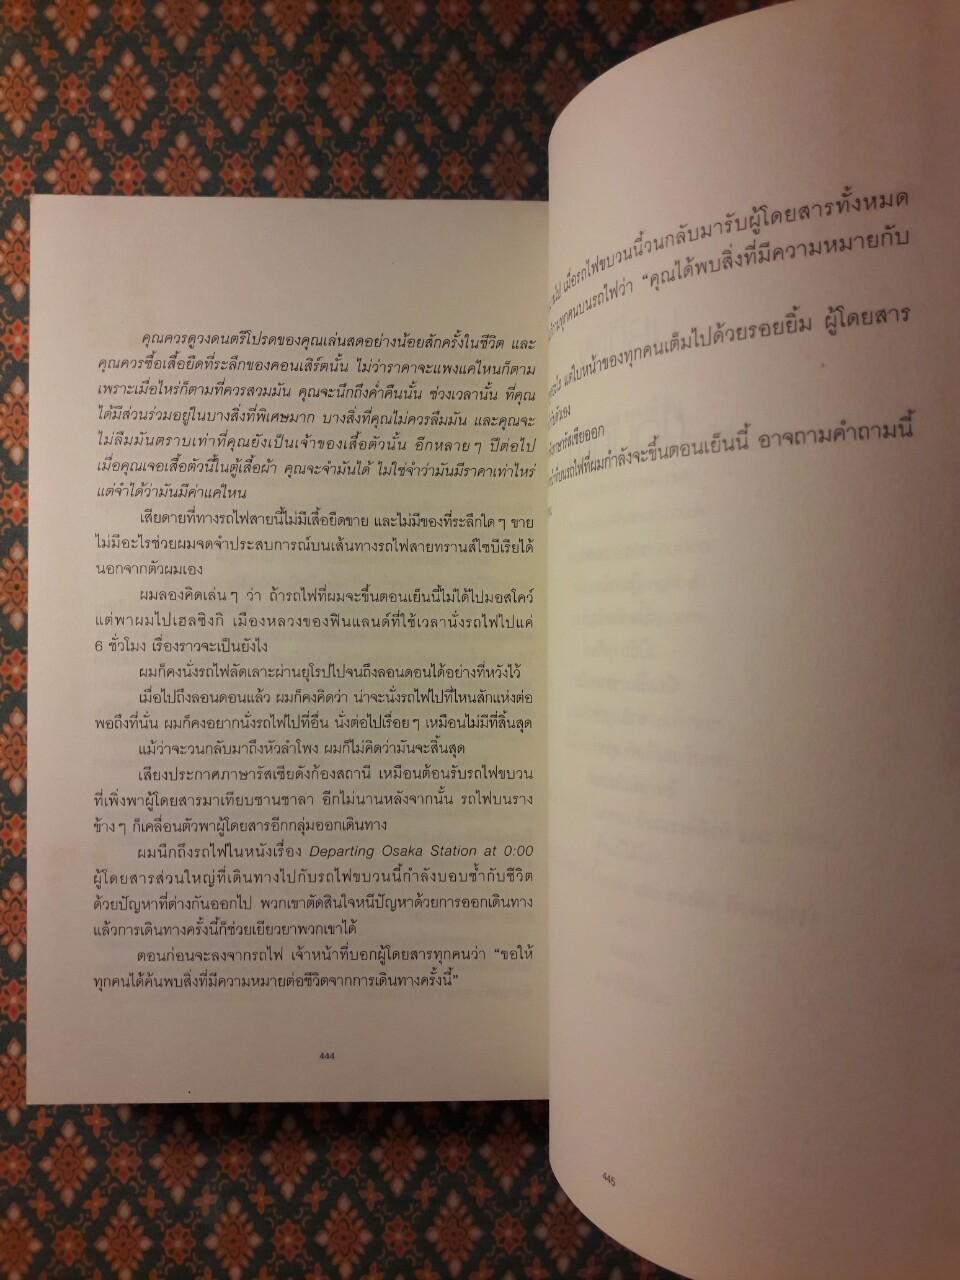 คุณควรดูวงดนตรีโปรดของคุณเล่นสดอย่างน้อยสักครั้งในชีวิต และ
คุณควรซื้อเสื้อยืดที่ระลึกของคอนเสิร์ตนั้น ไม่ว่าราคาจะแพงแค่ไหนก็ตาม
เพราะเมื่อไหร่ก็ตามที่ควรสวมมัน คุณจะนึกถึงค่ำคืนนั้น ช่วงเวลานั้น ที่คุณ
ได้มีส่วนร่วมอยู่ในบางสิ่งที่พิเศษมาก บางสิ่งที่คุณไม่ควรลืมมัน และคุณจะ
ไม่ลืมมันตราบเท่าที่คุณยังเป็นเจ้าของเสื้อตัวนั้น อีกหลายๆ ปีต่อไป
เมื่อคุณเจอเสื้อตัวนี้ในตู้เสื้อผ้า คุณจะจำมันได้ ไม่ใช่จำว่ามันมีราคาเท่าไหร่
แต่จำได้ว่ามันมีค่าแค่ไหน
เสียดายที่ทางรถไฟสายนี้ไม่มีเสื้อยืดขาย และไม่มีของที่ระลึกใดๆ ขาย
ไม่มีอะไรช่วยผมจดจำประสบการณ์บนเส้นทางรถไฟสายทรานส์ไซบีเรียได้
นอกจากตัวผมเอง
ผมลองคิดเล่นๆ ว่า ถ้ารถไฟที่ผมจะขึ้นตอนเย็นนี้ไม่ได้ไปมอสโคว์
แต่พาผมไปเฮลซิงกิ เมืองหลวงของฟินแลนด์ที่ใช้เวลานั่งรถไฟไปแค่
6 ชั่วโมง เรื่องราวจะเป็นยังไง
ผมก็คงนั่งรถไฟลัดเลาะผ่านยุโรปไปจนถึงลอนดอนได้อย่างที่หวังไว้
เมื่อไปถึงลอนดอนแล้ว ผมก็คงคิดว่า น่าจะนั่งรถไฟไปที่ไหนสักแห่งต่อ
พอถึงที่นั่น ผมก็คงอยากนั่งรถไฟไปที่อื่น นั่งต่อไปเรื่อยๆ เหมือนไม่มีที่สิ้นสุด
แม้ว่าจะวนกลับมาถึงหัวลำโพง ผมก็ไม่คิดว่ามันจะสิ้นสุด
เสียงประกาศภาษารัสเซียดังก้องสถานี เหมือนต้อนรับรถไฟขบวน
ที่เพิ่งพาผู้โดยสารมาเทียบชานชาลา อีกไม่นานหลังจากนั้น รถไฟบนราง
ข้างๆ ก็เคลื่อนตัวพาผู้โดยสารอีกกลุ่มออกเดินทาง
ผมนึกถึงรถไฟในหนังเรื่อง Departing Osaka Station at 0:00
ผู้โดยสารส่วนใหญ่ที่เดินทางไปกับรถไฟขบวนนี้กำลังบอบช้ำกับชีวิต
ด้วยปัญหาที่ต่างกันออกไป พวกเขาตัดสินใจหนีปัญหาด้วยการออกเดินทาง
แล้วการเดินทางครั้งนี้ก็ช่วยเยียวยาพวกเขาได้
ตอนก่อนจะลงจากรถไฟ เจ้าหน้าที่บอกผู้โดยสารทุกคนว่า “ขอให้
ทุกคนได้ค้นพบสิ่งที่มีความหมายต่อชีวิตจากการเดินทางครั้งนี้”
444
เมื่อรถไฟขบวนนี้วนกลับมารับผู้โดยสารทั้งหมด
ทุกคนบนรถไฟว่า “คุณได้พบสิ่งที่มีความหมายกับ
แต่ใบหน้าของทุกคนเต็มไปด้วยรอยยิ้ม ผู้โดยสาร
ภาษารัสเซียออก
บนรถไฟที่ผมกำลังจะขึ้นตอนเย็นนี้ อาจถามคำถามนี้
445